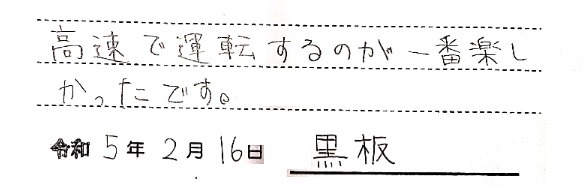 高速で運転するのが一番楽し
かったです。
令和5年2月16日 黒板